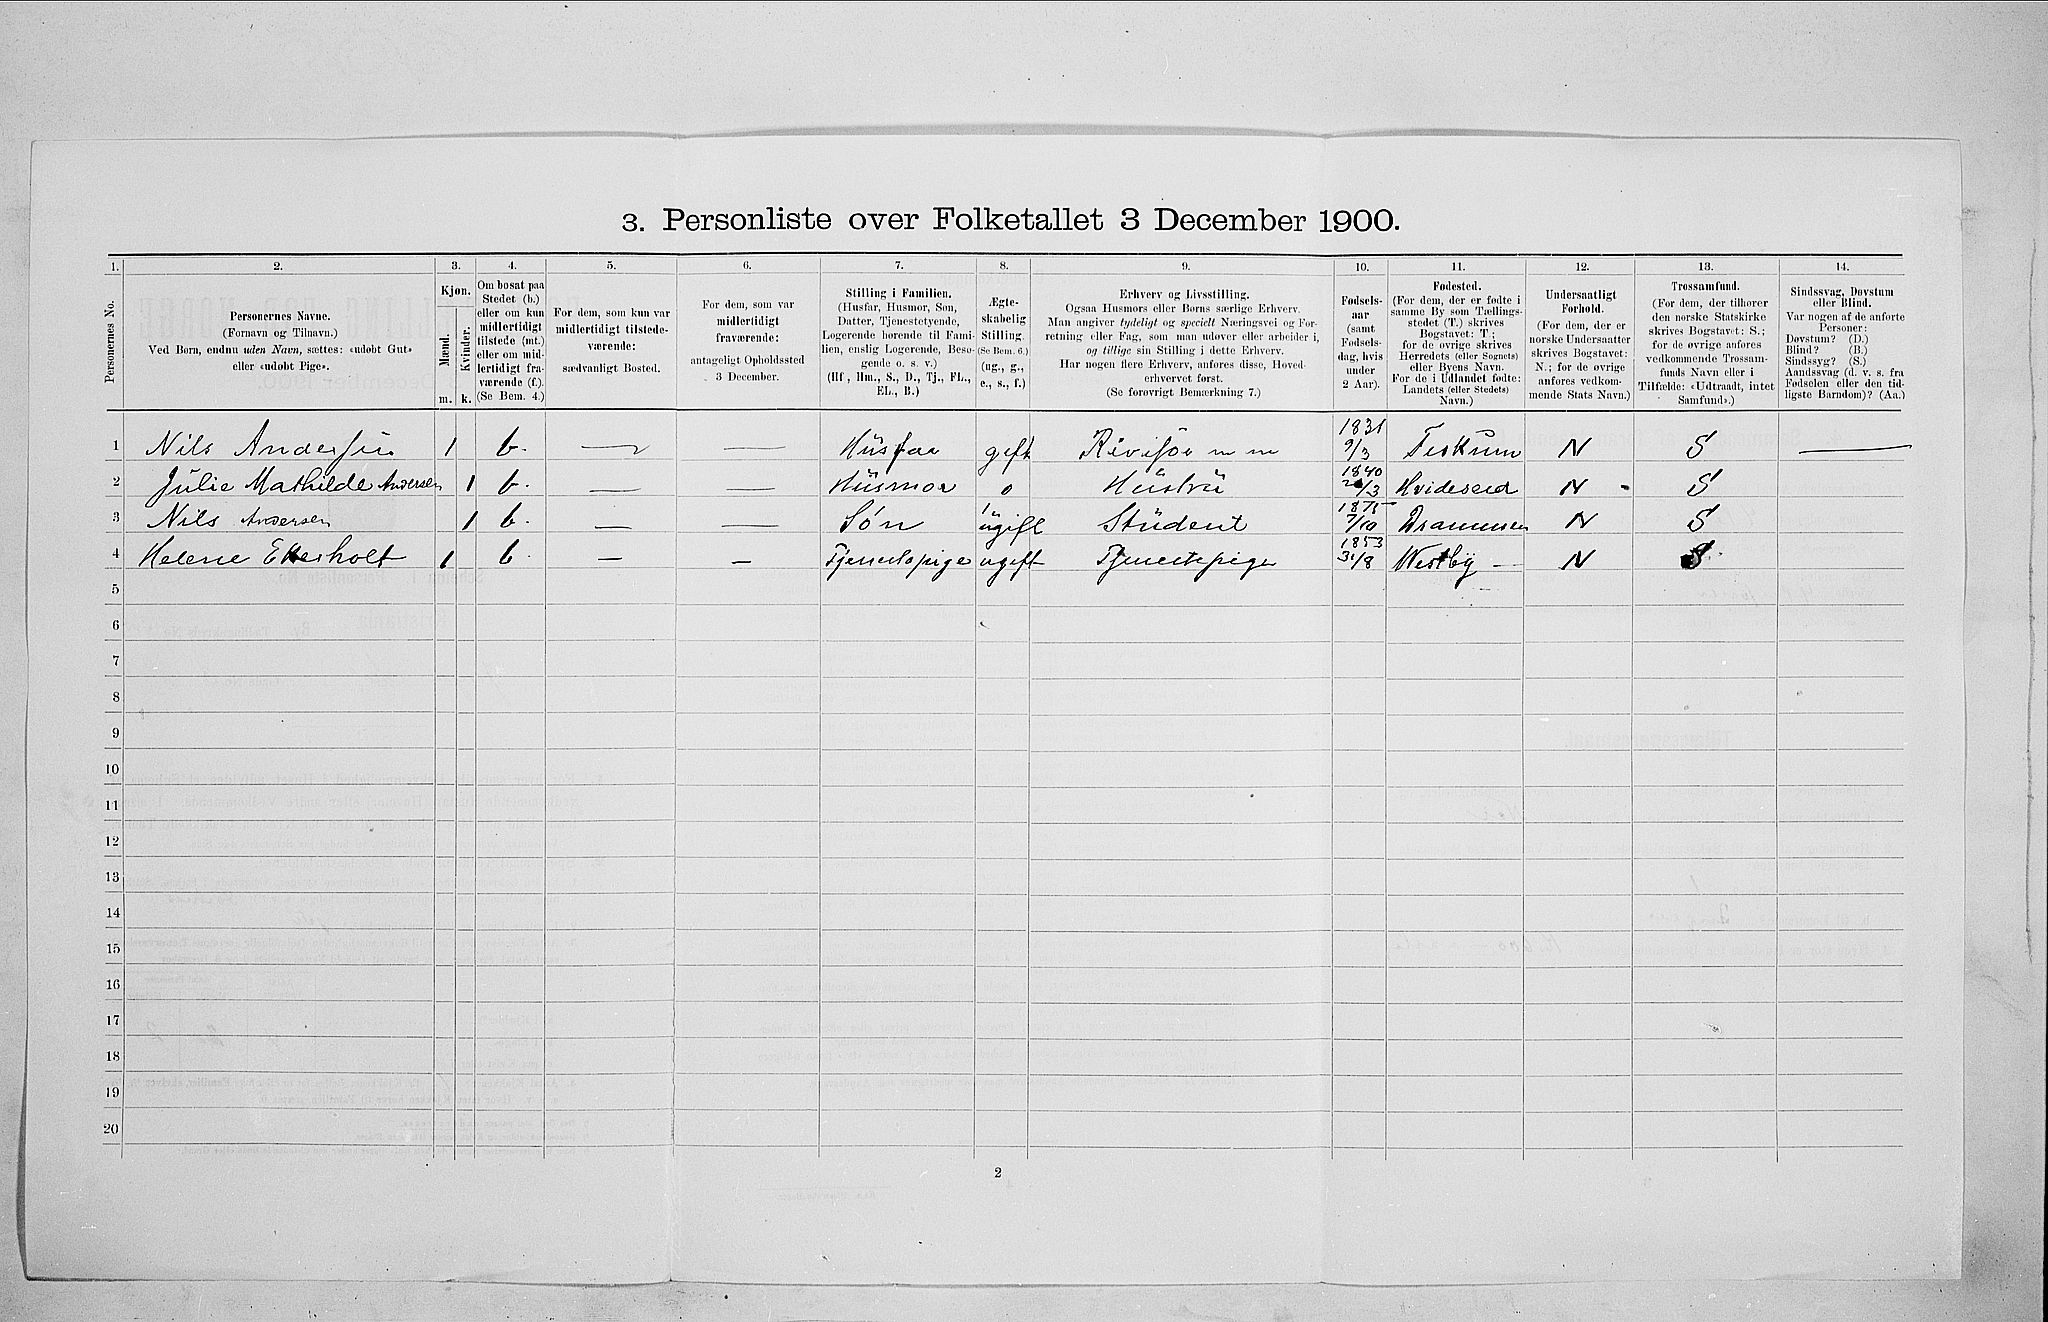 3. Personliste over Folketallet 3 December 1900.
1. 2. 3. 4. 5. 6. 7. 8. 9. 10. 11. 12. 13. 14.
Personernes No.
Personernes Navne.
(Fornavn og Tilnavn.)
Ved Børn, endnu uden Navn, sættes: «udøbt Gut»
eller «udøbt Pige».
Kjøn.
Mænd.
Kvinder.
m. k.
Om bosat paa
Stedet (b.)
eller om kun
midlertidigt
tilstede (mt.)
eller om mid-
lertidigt fra-
værende (f.)
(Se Bem. 4.)
For dem, som kun var
midlertidigt tilstede-
værende:
sædvanligt Bosted.
For dem, som var
midlertidigt
fraværende:
antageligt Opholdssted
3 December.
Stilling i Familien.
(Husfar, Husmor, Søn,
Datter, Tjenestetyende,
Logerende hørende til Fami-
lien, enslig Logerende, Besø-
gende o. s. v.)
(Hf., Hm., S., D., Tj., FL.,
EL., B.)
Ægte-
skabelig
Stilling.
(Se Bem. 6.)
(ug., g.,
e., s., f.)
Erhverv og Livsstilling.
Ogsaa Husmors eller Børns særlige Erhverv.
Man angiver tydeligt og specielt Næringsvei og For-
retning eller Fag, som man udøver eller arbeider i,
og tillige sin Stilling i dette Erhverv.
Har nogen flere Erhverv, anføres disse, Hoved-
erhvervet først.
(Se forøvrigt Bemærkning 7.)
Fødsels-
aar
(samt
Fødsels-
dag, hvis
under
2 Aar).
Fødested.
(For dem, der er fødte i
samme By som Tællings-
stedet (T.) skrives
Bogstavet: T;
for de øvrige skrives
Herredets (eller Sognets)
eller Byens Navn.
For de i Udlandet fødte:
Landets (eller Stedets)
Navn.)
Undersaatligt
Forhold.
(For dem, der er
norske Undersaatter
skrives Bogstavet:
N.; for de øvrige
anføres vedkom-
mende Stats Navn.)
Trossamfund.
(For dem, der tilhører
den norske Statskirke
skrives Bogstavet: S.;
for de øvrige anføres
vedkommende Trossam-
funds Navn eller i
Tilfælde: «Udtraadt, intet
Samfund».)
Sindssvag, Døvstum
eller Blind.
Var nogen af de anførte
Personer:
Døvstum? (D.)
Blind? (B.)
Sindssyg? (S.)
Aandssvag (d. v. s. fra
Fødselen eller den tid-
ligste Barndom)? (Aa.)
1 Nils Andersen 1 b. — — Husfar gift Revisor m m 1831 9/3 Feskum N S —
2 Julie Mathilde Andersen 1 b. — — Husmor o Hustru 1840 /3 Hvideseid N - S
3 Nils Andersen 1 b. — — Søn ugift Student 1875 7/10 Drammen N S
4 Helene Ekerholt 1 b — — Tjenestepige ugift Tjenestepige 1853 31/8 Westby N S
5
6
7
8
9
10
11
12
13
14
15
16
17
18
19
20
2